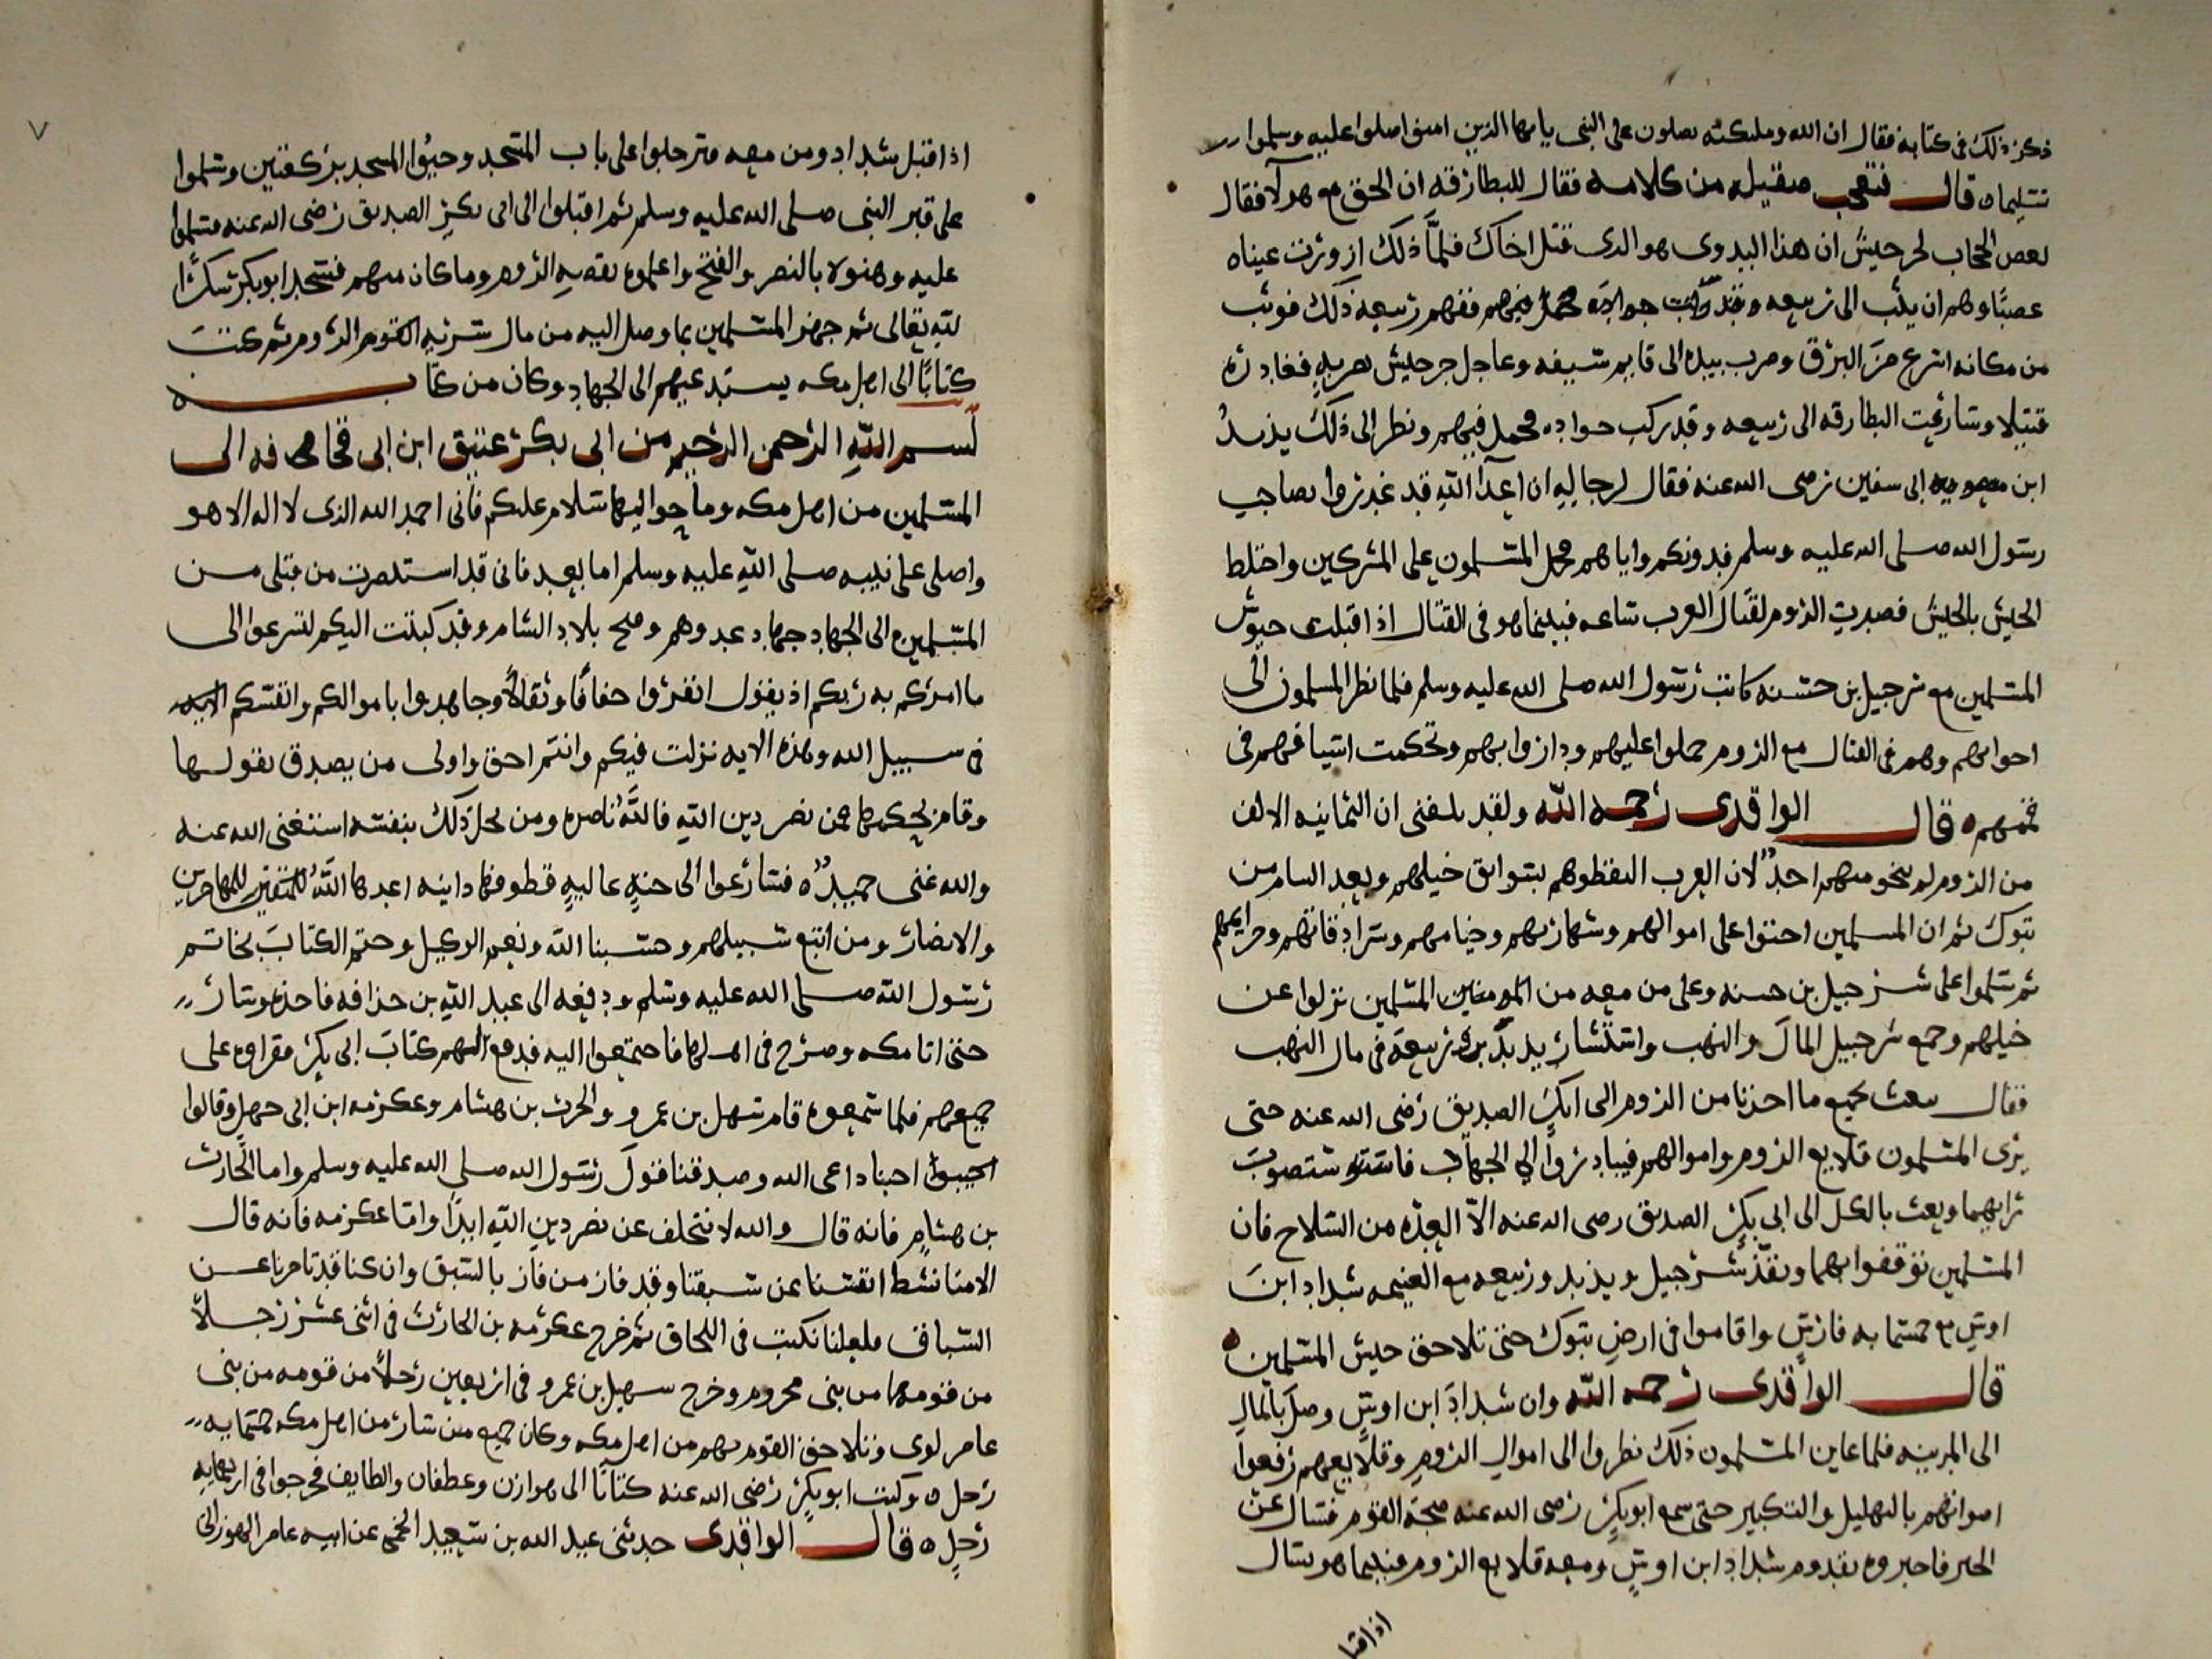 ذكر ذلك فى كتابه فقال ان الله وملىكته يصلون على النبى يا ايها الذين امنوا صلوا عليه وسلموا
تسليما ه قال فتعجب صقيله من كلامه فقال للبطارقه ان الحق مع هولآ فقال
بعض الحجاب لجرجيش ان هذا البدوى هو الدى قتل اخاك فلمّا ذلك ازورت عيناه
غضبًا وهم ان يثب الى ربيعه وفهم ربيعه ذلك فوثب
من مكانه اسرع من البرق وضرب بيده الى قايم سيفه وعاجل جرجيش بضربهٍ فغادره
قتيلا وتسارعت البطارقه الى ربيعه وقد ركب جواده فحمل فيهم ونظر الى ذلك يزيدُ
ابن ابى سفين رضى الله عنه فقال لرجاله ان اعدآ اللّه قد غدروا بصاحب
رسول الله صلى الله عليه وسلم فدونكم واياهم فحمل المسلمون على المشركين واختلط
الجيش بالجيش فصبرت الروم لقتال العرب ساعه فبينما هو فى القتال اذا اقبلت جيوش
المسلمين مع شرحبيل بن حسنه كاتب رسول الله صلى الله عليه وسلم فلما نظر المسلمون الى
اخوانهم وهم فى القتال مع الروم حملوا عليهم وداروا بهم وتحكمت اسيافهم فى
قممهم ه قال الواقدى رحمه اللّه ولقد بلغنى ان الثمانيه الالف
من الروم لم ينجو منهم احدٌ لان العرب التقطوهم بسوابق خيلهم وبعد الشام من
تبوك ثم ان المسلمين احتووا على اموالهم وشهاريهم وخيامهم وسرادقاتهم وخزايهم
ثم سلموا على شرحبيل بن حسنه وعلى من معه من المسلمين نزلوا عن
خيلهم وجمع شرحبيل المال والنهب واستشار يزيد بن ربيعة فى مال النهب
فقال نبعث بجميع ما اخذنا من الروم الى ابى بكر الصديق رضى الله عنه حتى
يرى المسلمون قلايع الروم واموالهم فيبادروا الى الجهاد فاستصوب
رايهما وبعث بالكل الى ابى بكر الصديق رضى الله عنه الّا العِدّه من السلاح فان
المسلمين توقفوا بهما ونفّذ شرحبيل ويزيد وربيعه مع الغنيمه شداد ابن
اوسٍ مع خمسمايه فارسٍ واقاموا فى ارض تبوك حتى تلاحق جيش المسلمين ه
قال الواقدى رحمه اللّه وان شداد ابن اوسٍ وصل بالمال
الى المدينه فلما عاين المسلمون ذلك نظروا الى اموال الروم وقلايعهم رفعوا
اصواتهم بالتهليل والتكبير حتى سمع ابو بكر رضى الله عنه ضجة القوم فسال عن
الخبر فاخبروه بقدوم شداد ابن اوسٍ ومعه قلايع الروم فبينما هو يسال
اذاقبا
٧
اذا قبل شداد ومن معه فترجلوا على باب المسجد وحيّوا المسجد بركعتين وسلموا
على قبر النبى صلى الله عليه وسلم ثم اقبلوا الى ابى بكر الصديق رضى الله عنه فسلموا
عليه وهنوه بالنصر والفتح واعلموه بقصه الروم وما كان منهم فسجد ابو بكر شكرًا
للّه تعالى ثم جهز المسلمين بما وصل اليه من مال سريه القوم الروم ثم كتب
كتابًا الى اهل مكه يستدعيهم الى الجهاد وكان من كتابه
بسم اللّه الرحمن الرحيم من ابى بكر عتيق ابن ابى قحافه الى
المسلمين من اهل مكه وما حواليها سلام عليكم فانى احمد الله الذى لا اله الا هو
واصلى على نبيه صلى اللّه عليه وسلم اما بعد فانى قد استنصرت من قبلى من
المسلمين الى الجهاد جهاد عدوهم وفتح بلاد الشام وقد كتبت اليكم لتسرعوا الى
ما امركم به ربكم اذ يقول انفروا خفافًا وثقالًا وجاهدوا باموالكم وانفسكم
فى سبيل الله وهذه الايه نزلت فيكم وانتم احق واولى من يصدق بقولها
وقام بحكمها فمن نصر دين اللّه فاللّه ناصره ومن بخل ذلك بنفسه استغنى الله عنه
والله غنى حميدٌ ه فسارعوا الى جنهٍ عاليهٍ قطوفها دانيه اعدها اللّهُ للمهاجرين
والانصار ومن اتبع سبيلهم وحسبنا اللّه ونعم الوكيل وختم الكتاب بخاتم
رسول اللّه صلى الله عليه وسلم ودفعه الى عبد اللّه بن حذافه فاخذه وسار
حتى اتا مكه وصرخ فى اهلها فاجتمعوا اليه فدفع اليهم كتاب ابى بكر فقراوه على
جميعهم فلما سمعوه قام سهل بن عمرو والحرث بن هشام وعكرمه ابن ابى جهل وقالوا
اجبنا داعى الله وصدقنا قول رسول الله صلى الله عليه وسلم واما الحارث
بن هشام فانه قال والله لا نتخلف عن نصر دين اللّه ابدًا واما عكرمه فانه قال
الامنا نشط انفسنا عن سبقنا وقد فاز من فاز بالسبق وان كنا قد تاخرنا عن
السباق فلعلنا نكتب فى اللحاق ثم خرج عكرمه بن الحارث فى اثنى عشر رجلًا
من قومهما من بنى مخزوم وخرج سهيل بن عمرو فى اربعين رجلًا من قومه من بنى
عامر لوى وتلاحق القوم بهم من اهل مكه وكان جميع من سار من اهل مكه خمسمايه
رجل ه وكتب ابو بكر رضى الله عنه كتابًا الى هوازن وغطفان والطايف فخرجوا فى اربعمايه
رجلٍ ه قال الواقدى حدثنى عبد الله بن سعيد عن ابيه عامر الهوزانى